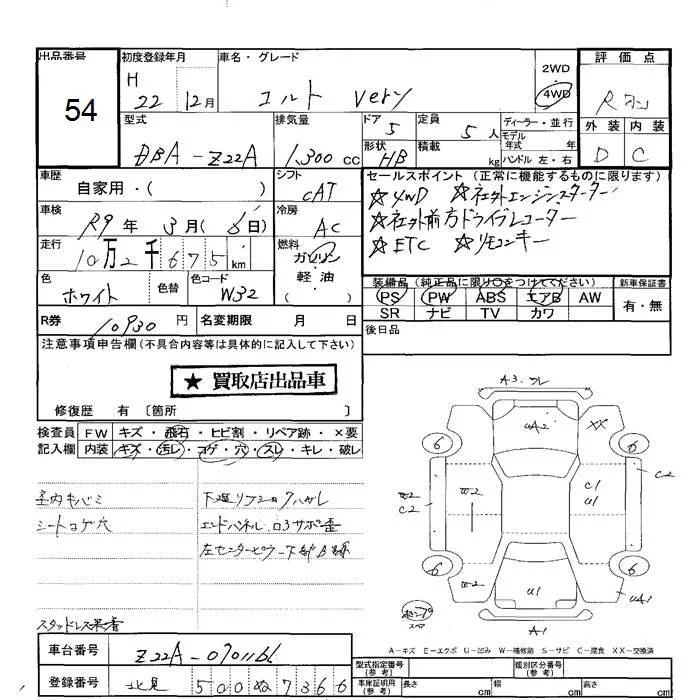 出品番号 初度登録年月 車名・グレード 2WD 評価点
54 H 22 12月 コルト very 4WD R タン
型式 排気量 ドア 定員 ディーラー・並行 外装 内装
DBA-Z22A 1,300 cc 5 5人 モデル年式 年式 D C
形状 積載 ハンドル 左・右
HB kg
車歴 シフト セールスポイント (正常に機能するものに限ります)
自家用・( ) CAT ☆4WD ☆社外エンジンスターター
車検 冷房 ☆社外前方ドライブレコーダー
R9年 3月( 6日) AC ☆ETC ☆リモコンキー
走行 燃料
10万2千675km ガソリン
軽油
色 色替 色コード 装備品 (純正品に限り○をつけてください) 新車保証書
ホワイト W32 ( ) PS PW ABS エアB AW 有・無
SR ナビ TV カワ
R券 10930円 名変期限 月 日 後日品
注意事項申告欄(不具合内容等は具体的に記入して下さい)
★ 買取店出品車
修復歴 有 〔箇所 〕
検査員 FW キズ・飛石・ヒビ割・リペア跡・×要
記入欄 内装 キズ・汚レ・コゲ・穴・スレ・キレ・破レ
A3.フレ
UA2 XX
6 6
W2 C2 W2 C1 U1 C2
6 6
W2 U1 UA1
A1
スペア
室内 下廻リ
シートコゲ穴 エンドパネル.
左センターピラー下部
スタッドレス装着
A-キズ E-エクボ U-凹み W-補修跡 S-サビ C-腐食 XX-交換済
車台番号 Z22A-0701166
登録番号 北見 500 ぬ 7366
型式指定番号(参考) 類別区分番号(参考)
車庫証明用(参考) 長さ cm 幅 cm 高さ cm